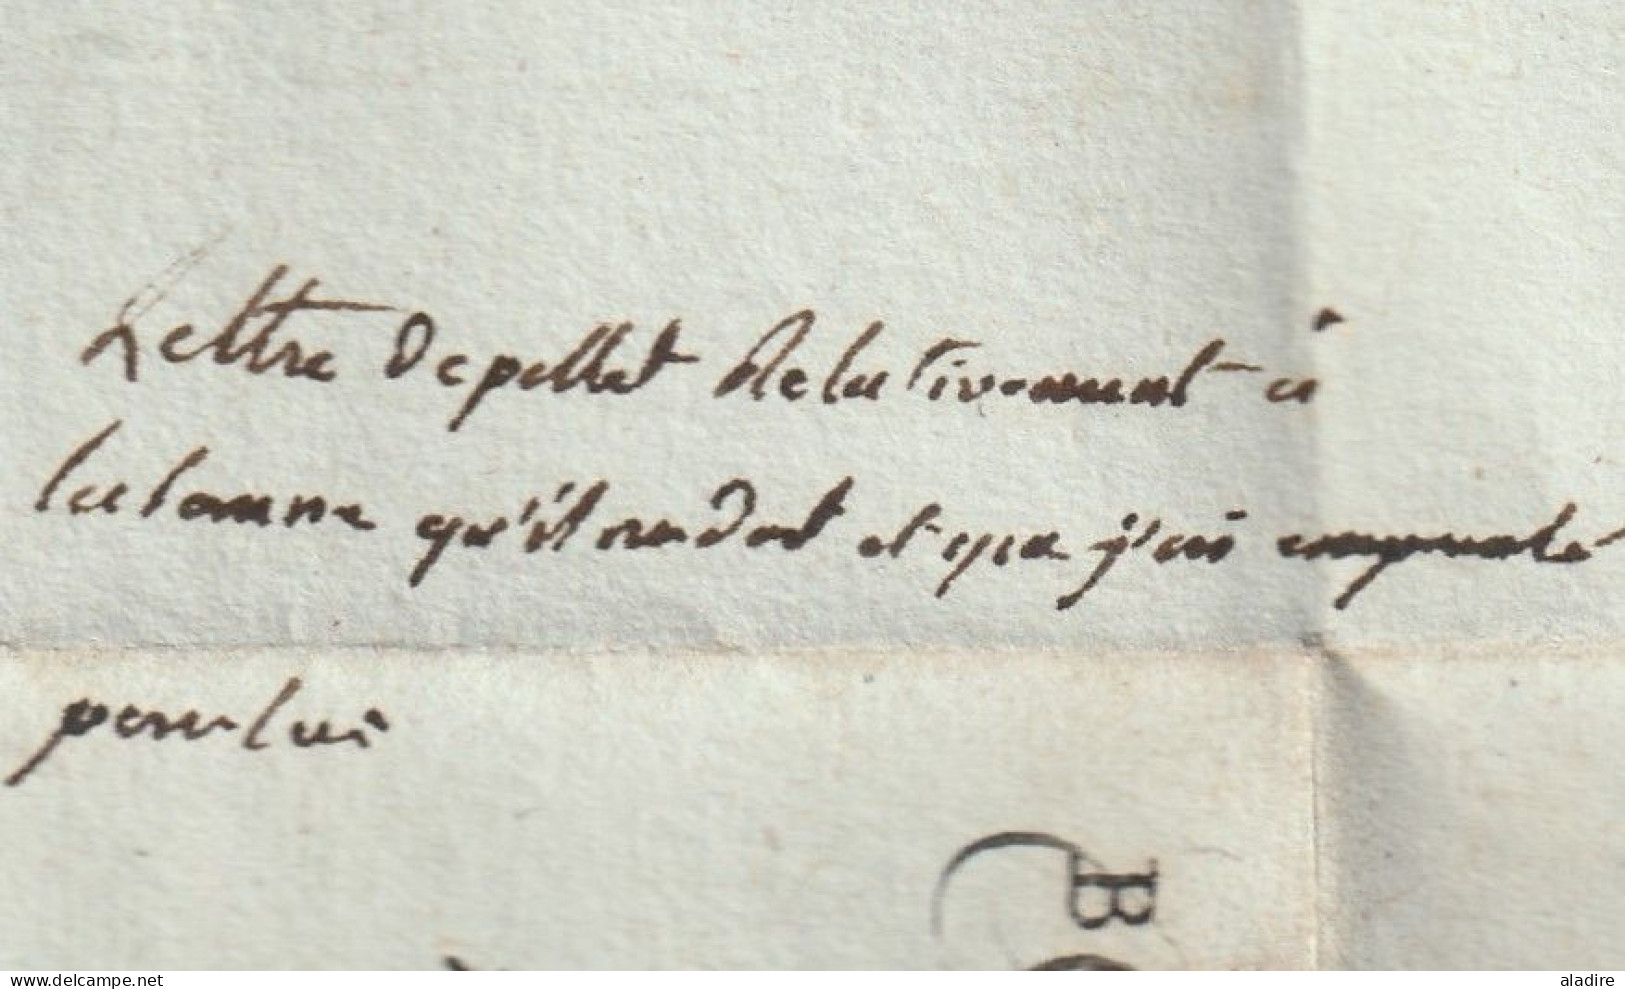 Lettre de pellet Relativement à
la somme qu'il me doit et que j'ai emprunté
pour lui
B
www.delcampe.net
aladire